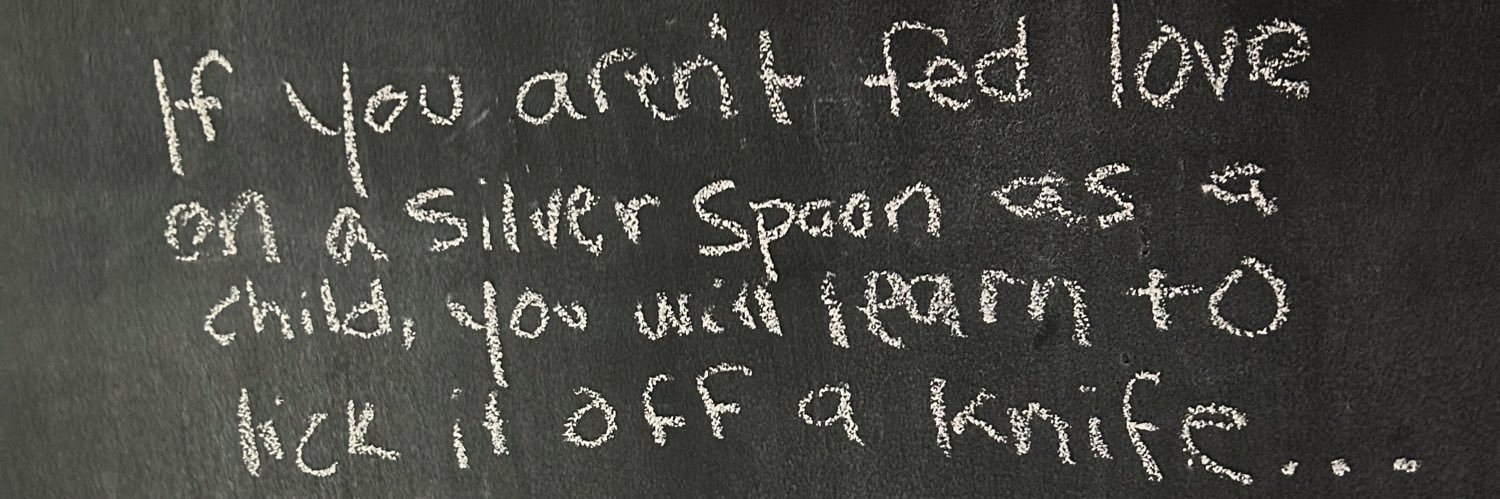 If you aren't fed love
on a silver spoon as a
child, you will learn to
lick it off a knife...